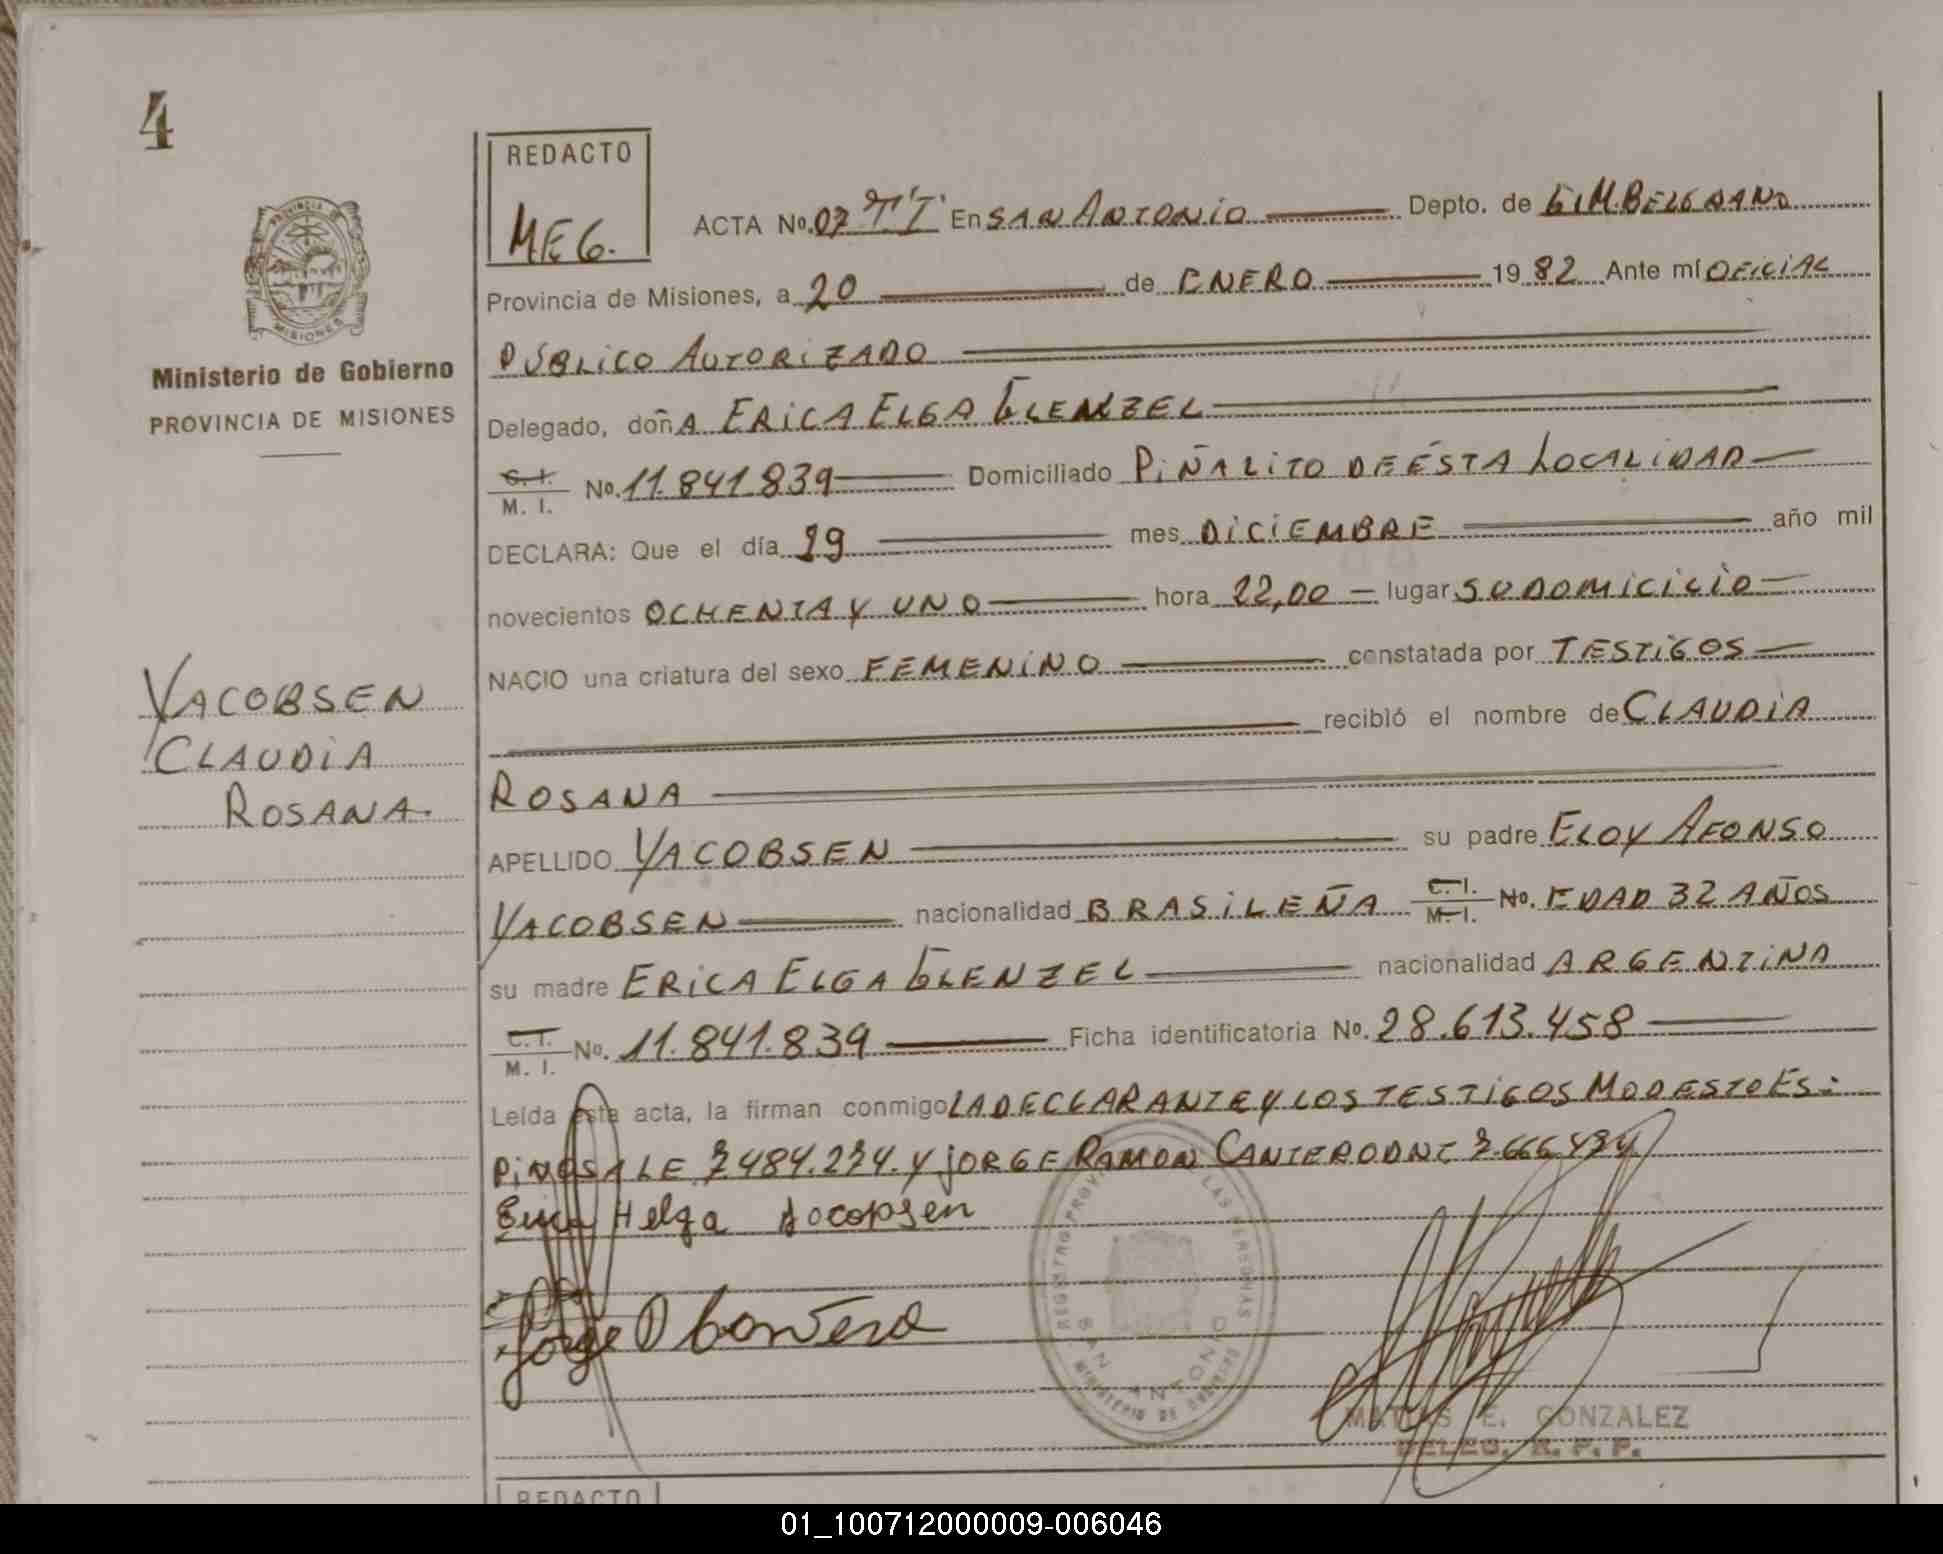 4
REDACTO
MEG.
ACTA No. 07 "T" En SAN ANTONIO Depto. de G/M. BELGRANO
Provincia de Misiones, a 20 de ENERO 1982 Ante mí OFICIAL
PÚBLICO AUTORIZADO
Delegado, doñA ERICA ELGA GLENZEL
C. I. M. I. No. 11.841.839 Domiciliado PIÑALITO DE ÉSTA LOCALIDAD
DECLARA: Que el día 29 mes DICIEMBRE año mil
novecientos OCHENTA Y UNO hora 22,00 lugar SU DOMICILIO
NACIO una criatura del sexo FEMENINO constatada por TESTIGOS
recibió el nombre de CLAUDIA
ROSANA
APELLIDO YACOBSEN su padre ELOY AFONSO
YACOBSEN nacionalidad BRASILEÑA C. I. M. I. No. EDAD 32 AÑOS
su madre ERICA ELGA GLENZEL nacionalidad ARGENTINA
C. I. M. I. No. 11.841.839 Ficha identificatoria No. 28.613.458
Leída esta acta, la firman conmigo LA DECLARANTE Y LOS TESTIGOS MODESTO ES:
PINOSA LE 7.484.274. Y JORGE RAMON CANTERO DNI 7.666.474
Erica Helga
Jorge
Ministerio de Gobierno
PROVINCIA DE MISIONES
YACOBSEN
CLAUDIA
ROSANA.
PROVINCIA DE
MISIONES
REGISTRO PROVINCIAL DE LAS PERSONAS
SAN ANTONIO
MINISTERIO DE GOBIERNO
MATIAS E. GONZALEZ
DELEG. R. P. P.
REDACTO
01_100712000009-006046